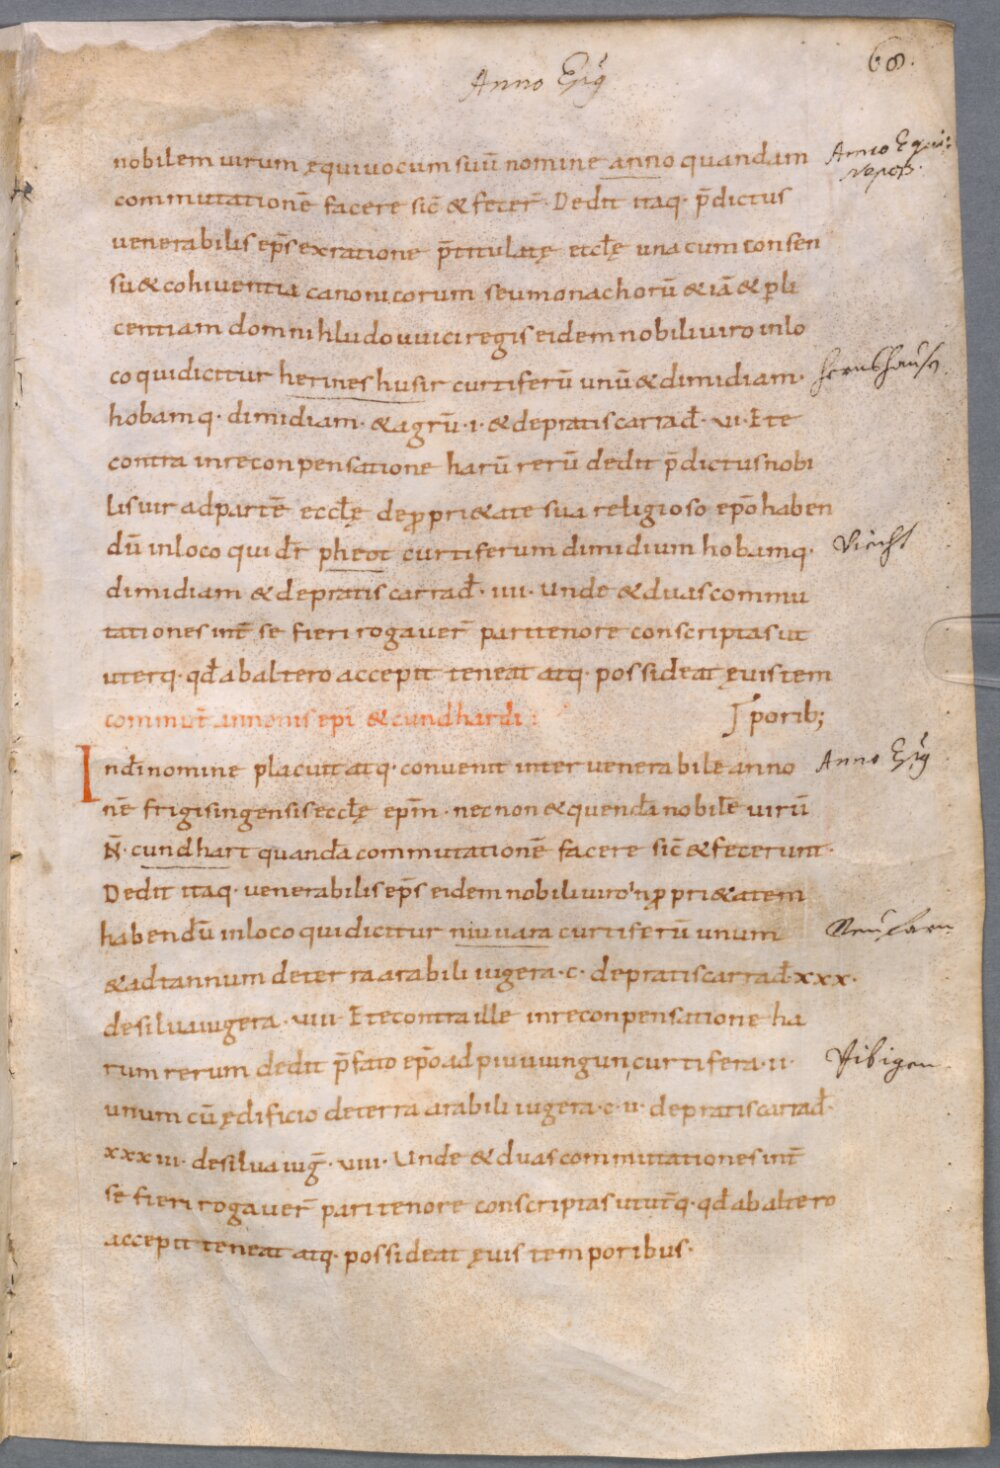 Anno Ep̃q
68.
nobilem uirum ęquiuocum suū nomine anno quandam
Anno Equi:
Nepos.
commutationē facere sic̄ & fecer̄· Dedit itaq· p̄dictus
uenerabilis ep̄s exratione p̄titulatę eccłę una cum consen
su & cohiuentia canonicorum seu monachorū & iā & p li
centiam domni hludouuici regis eidem nobili uiro inlo
co qui dicitur herineshusir curtiferū unū & dimidiam·
hobamq· dimidiam· & agrū·ı· & de pratis carrad̄· vı· Ete
contra inreconpensatione harū rerū dedit p̄dictus nobi
lis uir ad partē eccłę de propri&ate sua religioso ep̄o haben
dū inloco qui dr̄ pheot curtiferum dimidium hobamq·
Viecht
dimidiam & de pratis carrad̄· ıııı· Unde & duas commu
tationes int̄ se fieri rogauer̄ pari tenore conscriptas ut
uterq· qd̄ ab altero accepit teneat atq· possideat ęuis tem
commut̄ annonis ep̄i & cundhardi:
poribꝫ
Ind̄i nomine placuit atq· conuenit inter uenerabilē anno
Anno Ep̃q
nē frigisingensis eccłę ep̄m· necnon & quendā nobilē uirū
N̄· cundhart quandā commutationē facere sic̄ & fecerunt·
Dedit itaq· uenerabilis ep̄s eidem nobili uiro in propri&atem
habendū inloco qui dicitur niuuara curtiferū unum
& ad tannum de terra arabili iugera·c· de pratis carrad̄·xxx·
de silua iugera· vııı Ete contra ille inreconpensatione ha
rum rerum dedit p̄fato ep̄o ad piuuuingun curtifera·ıı·
Vibigen
unum cū ędificio de terra arabili iugera·c·ıı· de pratis carrad̄·
xxxııı· de silua iug̅· vııı· Unde & duas commutationes int̄
se fieri rogauer̄ pari tenore conscriptas ut ut̄q· qd̄ ab altero
accepit teneat atq· possideat ęuis temporibus·